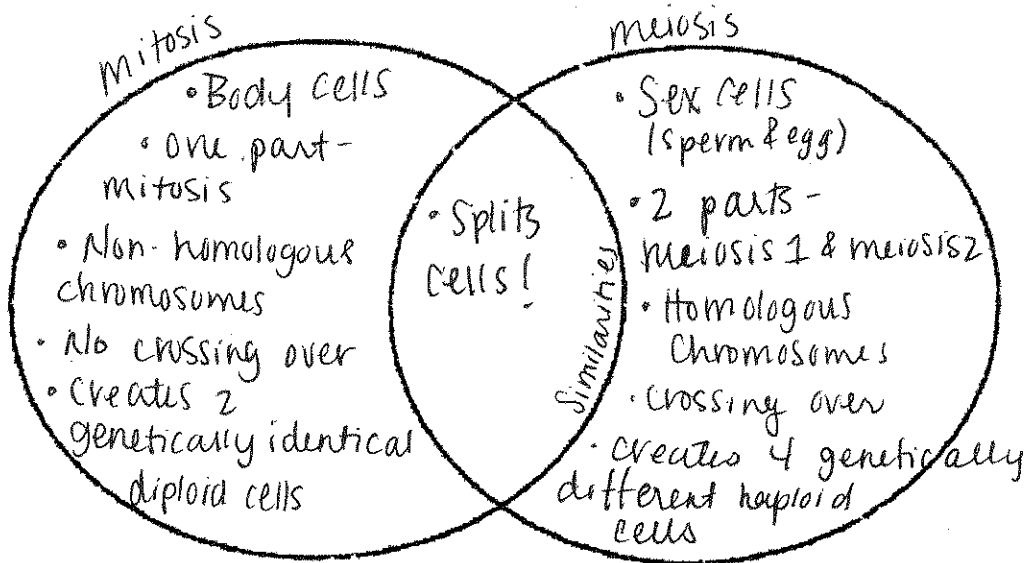 mitosis
• Body cells
• one part -
mitosis
• Non-homologous
chromosomes
• No crossing over
• Creates 2
genetically identical
diploid cells
• Splits
cells!
Similarities
meiosis
• Sex cells
(sperm & egg)
• 2 parts -
meiosis 1 & meiosis 2
• Homologous
Chromosomes
• crossing over
• creates 4 genetically
different haploid
cells